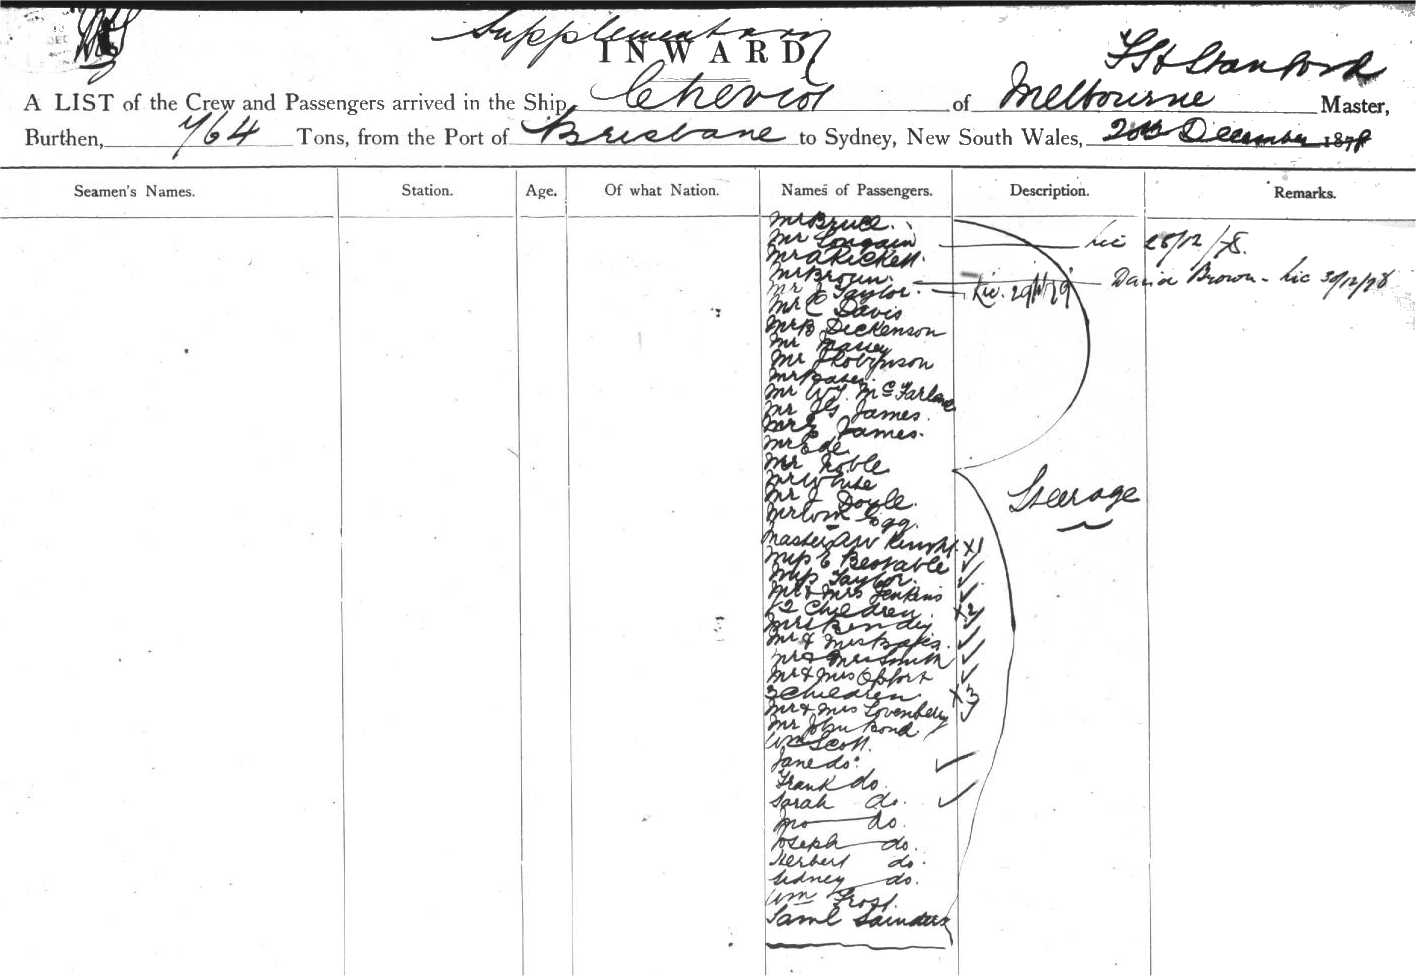 Supplementary
INWARD
A LIST of the Crew and Passengers arrived in the Ship, Cheviot of Melbourne T S H Stanford Master,
Burthen, 764 Tons, from the Port of Brisbane to Sydney, New South Wales, 20th December 1878
Seamen's Names. Station. Age. Of what Nation. Names of Passengers. Description. Remarks.
Mr Bruce.
Mr Longain Lic 28/12/78.
Mr A Rickett.
Mr Brown. David Brown - Lic 30/12/78
Mr J Taylor. Lic.
Mr C Davis
Mr B Dickenson
Mr Massey
Mr J Robinson
Mr
Mr W J McFarlane
Mr JG James.
Mr E James.
Mr Ede
Mr Noble
Mr White
Mr J Doyle.
Mr Wm Egg.
Steerage
Master AW Knight X1
Miss E Bestable
Miss Taylor.
Mr & Mrs Jenkins
& 2 Children. X2
Mrs Bendy
Mr & Mrs
Mr & Mrs Smith
Mr & Mrs Oppert
3 Children X3
Mr & Mrs Lovenberg
Mr John Bond
Wm Scott.
Jane do.
Frank do.
Sarah do.
Jno do.
Joseph do.
Herbert do.
Sidney do.
Wm Frost.
Saml Saunders